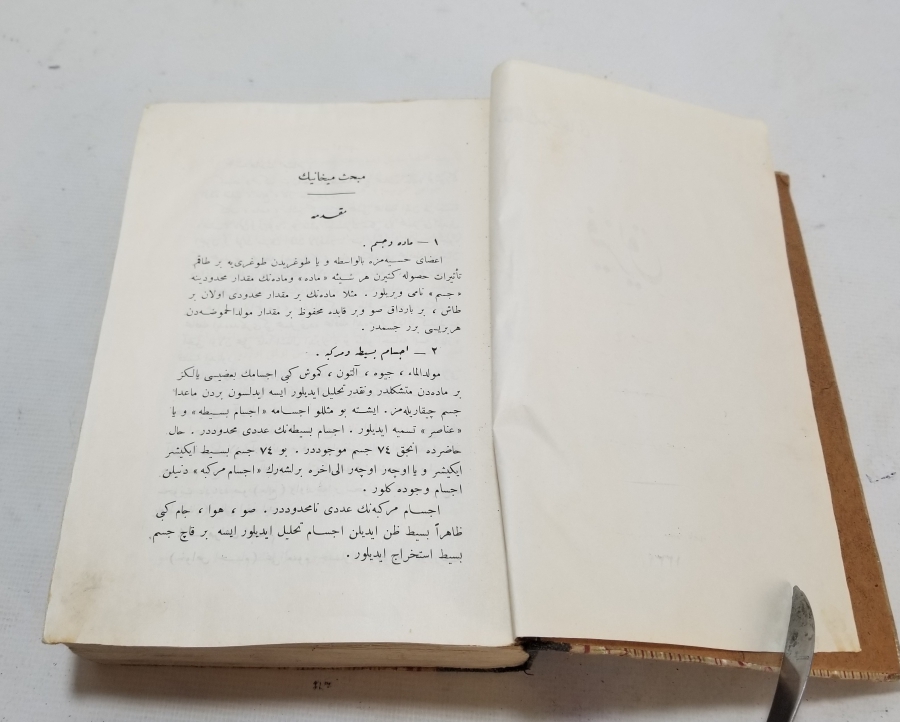 مبحث ميخانيك
مقدمه
١ — ماده وجسم .
اعضاى حسيه‌مزه بالواسطه و يا طوغريدن طوغرى‌يه بر طاقم
تأثيرات حصوله كتيرن هر شيئه «ماده» وماده‌نك مقدار محدودينه
«جسم» نامى ويريلور . مثلا ماده‌نك بر مقدار محدودى اولان بر
طاش ، بر بارداق صو وبر قابده محفوظ بر مقدار مولدالحموضه‌دن
هربريسى برر جسمدر .
٢ — اجسام بسيطه ومركبه .
مولدالماء ، جيوه ، آلتون ، كموش كبى اجسامك بعضيسى يالكز
بر ماده‌دن متشكلدر ونقدر تحليل ايديلور ايسه ايدلسون بردن ماعدا
جسم چيقاريله‌مز . ايشته بو مثللو اجسامه «اجسام بسيطه» و يا
«عناصر» تسميه ايديلور . اجسام بسيطه‌نك عددى محدوددر . حال
حاضرده انجق ٧٤ جسم موجوددر . بو ٧٤ جسم بسيط ايكيشر
ايكيشر و يا اوچر اوچر الى‌اخره برلشه‌رك «اجسام مركبه» دنيلن
اجسام وجوده كلور .
اجسام مركبه‌نك عددى نامحدوددر . صو ، هوا ، جام كبى
ظاهراً بسيط ظن ايديلن اجسام تحليل ايديلور ايسه بر قاچ جسم
بسيط استخراج ايديلور .